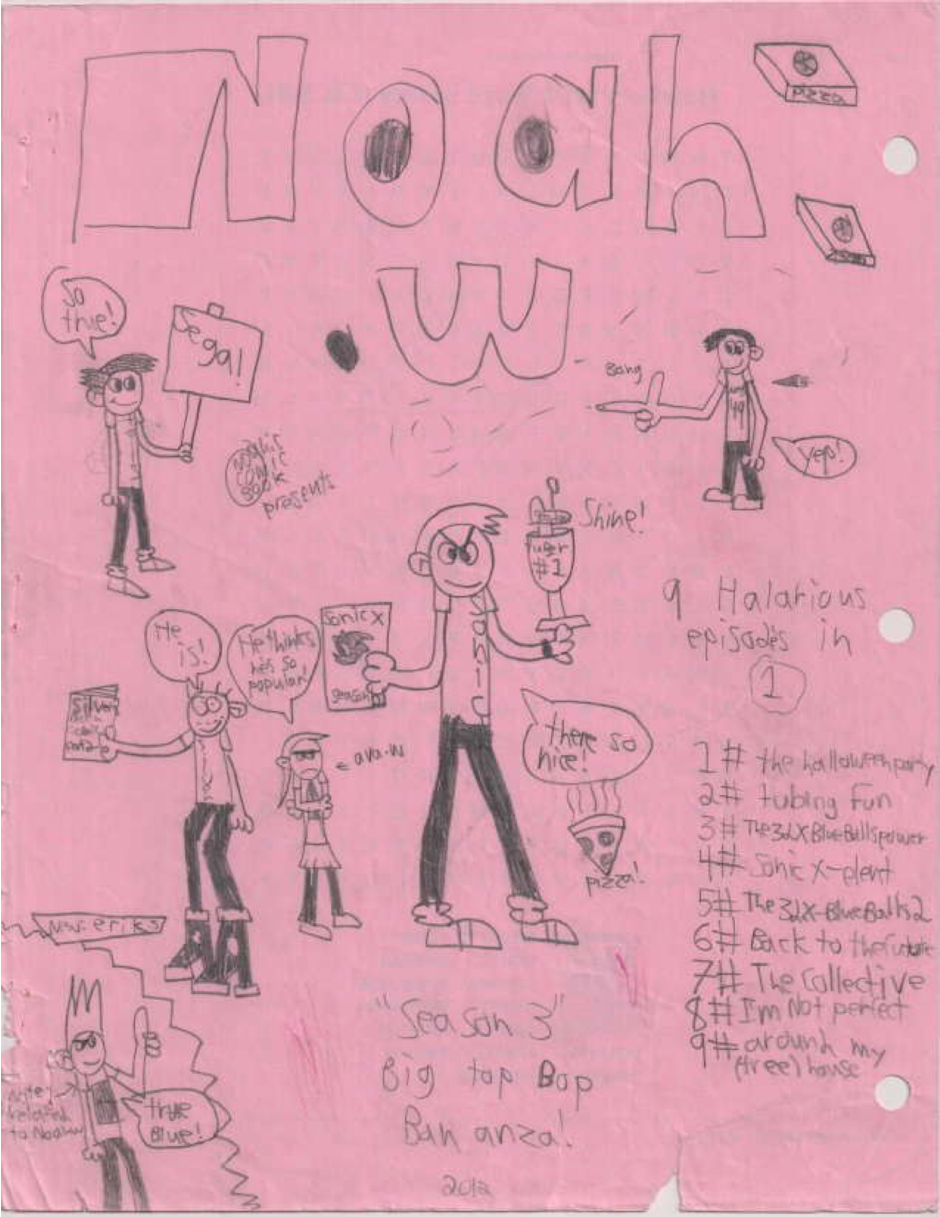 Noah
.W
pizza
So
true!
Sega!
Bang
49
yep!
COMIC
BOOK
presents
Shine!
#1
9 Halarious
episodes in
1
He
is!
He thinks
hes so
popular!
Sonic X
season
Sonic
Silver
ava.w
there so
nice!
pizza!
1# the halloween party
2# tubing fun
3# The 3d X-Blue Balls power
4# Sonic X-elent
5# The 3d X-Blue Balls 2
6# Back to the future
7# The collective
8# I'm Not perfect
9# around my
(tree) house
eriks
"Season 3"
Big top Bop
Bananza!
true
Blue!
to Noah.w
2012